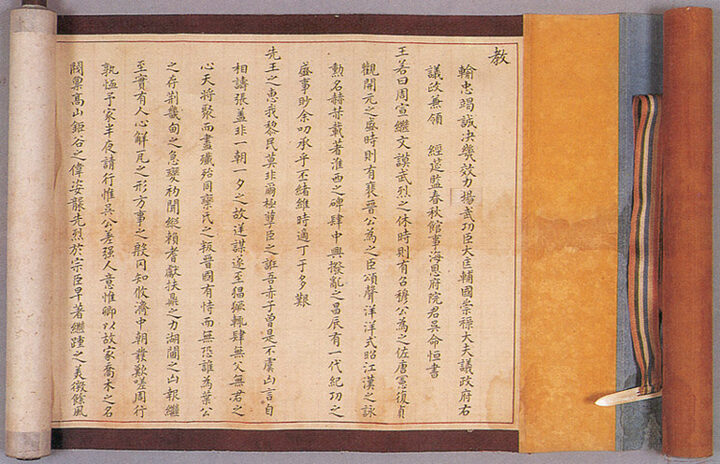 教
輸忠竭誠決幾效力揚武功臣大匡輔國崇祿大夫議政府右
議政兼領 經筵監春秋館事海恩府院君吳命恒書
王若曰周宣繼文謨武烈之休時則有召穆公為之佐唐憲復貞
觀開元之盛時則有裵晉公為之臣頌聲洋洋式昭江漢之詠
勳名赫赫載著淮西之碑肆中興撥亂之昌辰有一代紀功之
盛事眇余叨承乎丕緖維時適丁于多艱
先王之惠我黎民莫非爾極孽臣之誑吾赤子曾是不虞凶言自
相譸張盖非一朝一夕之故逆謀遂至猖獗輒肆無父無君之
心天將聚而盡殲殆同欒氏之叛晉國有恃而無恐誰為葉公
之存荊畿甸之急變初聞縱賴耆獻扶鼎之力湖閫之凶報繼
至實有人心解瓦之形方事之殷罔知攸濟中朝發歎嗟周行
孰恤予家半夜請行惟吳公差强人意惟卿以故家喬木之名
閥稟高山鉅谷之偉姿襲先烈於宗臣早著繼踵之美徵餘風